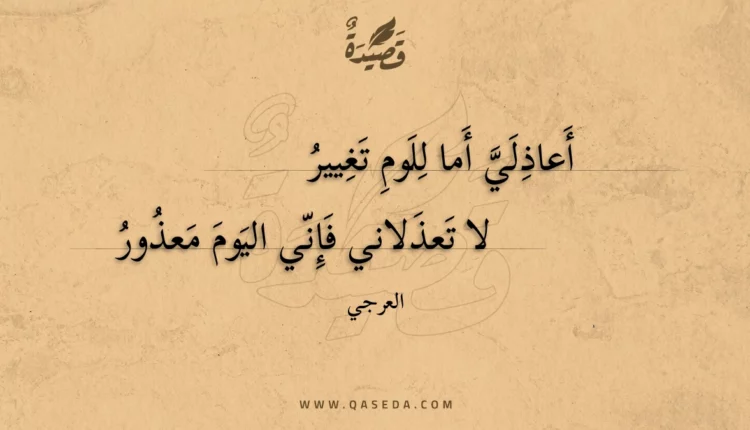 قَصِيدَةٌ
أَعاذِلَيَّ أَما لِلَومِ تَغِييرُ
لا تَعذَلاني فَإِنّي اليَومَ مَعذُورُ
العرجي
WWW.QASEDA.COM